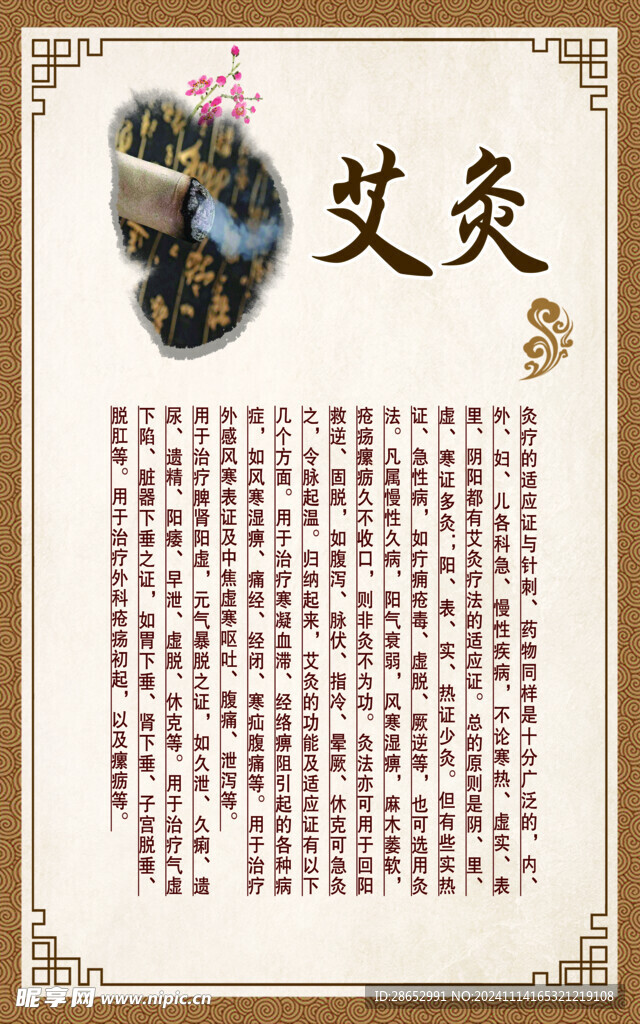 艾灸
灸疗的适应证与针刺、药物同样是十分广泛的，内、
外、妇、儿各科急、慢性疾病，不论寒热、虚实、表
里、阴阳都有艾灸疗法的适应证。总的原则是阴、里、
虚、寒证多灸；阳、表、实、热证少灸。但有些实热
证、急性病，如疔痈疮毒、虚脱、厥逆等，也可选用灸
法。凡属慢性久病，阳气衰弱，风寒湿痹，麻木萎软，
疮疡瘰疬久不收口，则非灸不为功。灸法亦可用于回阳
救逆、固脱，如腹泻、脉伏、指冷、晕厥、休克可急灸
之，令脉起温。归纳起来，艾灸的功能及适应证有以下
几个方面。用于治疗寒凝血滞、经络痹阻引起的各种病
症，如风寒湿痹、痛经、经闭、寒疝腹痛等。用于治疗
外感风寒表证及中焦虚寒呕吐、腹痛、泄泻等。
用于治疗脾肾阳虚，元气暴脱之证，如久泄、久痢、遗
尿、遗精、阳痿、早泄、虚脱、休克等。用于治疗气虚
下陷、脏器下垂之证，如胃下垂、肾下垂、子宫脱垂、
脱肛等。用于治疗外科疮疡初起，以及瘰疬等。
昵享网 www.nipic.cn
ID:28652991 NO:20241114165321219108